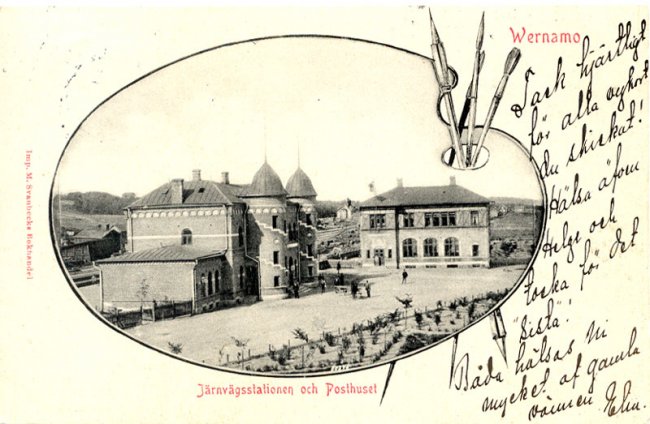 Wernamo
Imp. M. Svanbecks Bokhandel
Järnvägsstationen och Posthuset
Tack hjärtligt
för alla vykort
du skickat!
Hälsa äfven
Helge och
tacka för det
"sista"!
Båda hälsas Ni
mycket af gamla
vännen Elin.